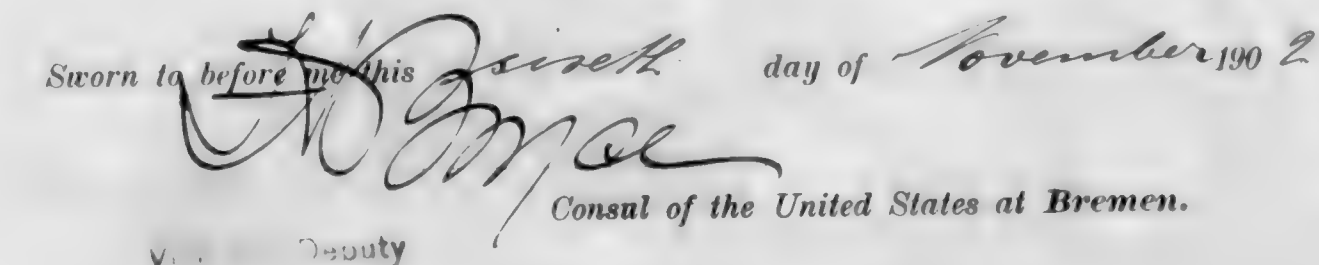 Sworn to before me this day of November 1902
Consul of the United States at Bremen.
Deputy